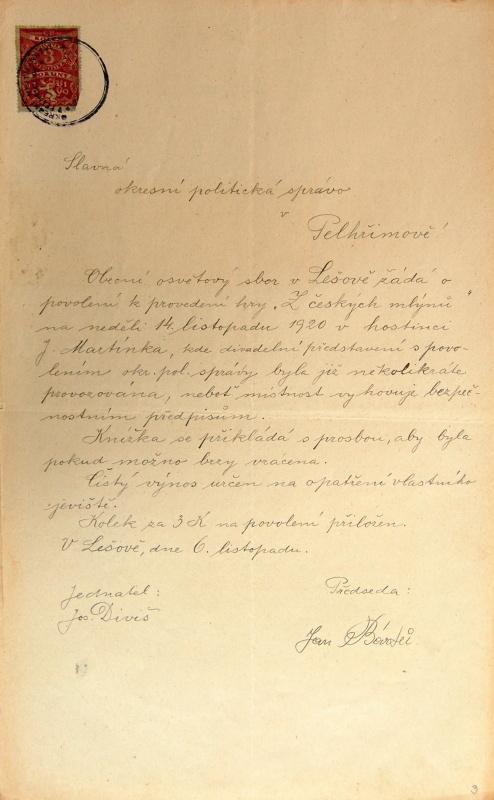 3
Slavná
okresní politická správo
v
Pelhřimově!
Obecní osvětový sbor v Lešově žádá o
povolení k provedení hry „Z českých mlýnů“
na neděli 14. listopadu 1920 v hostinci
J. Martínka, kde divadelní představení s povo-
lením okr. pol. správy byla již několikráte
provozována, neboť místnost vyhovuje bezpeč-
nostním předpisům.
Knížka se přikládá s prosbou, aby byla
pokud možno brzy vrácena.
Čistý výnos určen na opatření vlastního
jeviště.
Kolek za 3 K na povolení přiložen.
V Lešově, dne 6. listopadu.
Jednatel:
Jos. Diviš
Předseda:
Jan
3